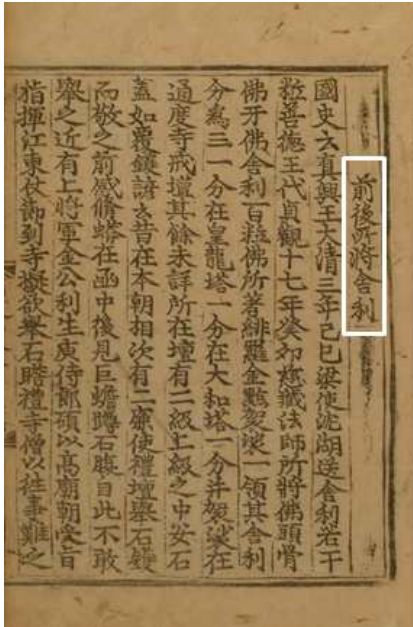 前後所將舍利
國史云真興王大清三年己巳梁使沈湖送舍利若干
粒善德王代貞觀十七年癸卯慈藏法師所將佛頭骨
佛牙佛舍利百粒佛所著緋羅金點袈裟一領其舍利
分為三一分在皇龍塔一分在大和塔一分并袈裟在
通度寺戒壇其餘未詳所在壇有二級上級之中安石
蓋如覆鑊諺云昔在本朝相次有二廉使禮壇舉石鑊
而敬之前感脩蟒在函中後見巨蟾蹲石腹自此不敢
舉之近有上將軍金公利生庾侍郎碩以高廟朝受旨
指揮江東仗節到寺擬欲舉石瞻禮寺僧以往事難之